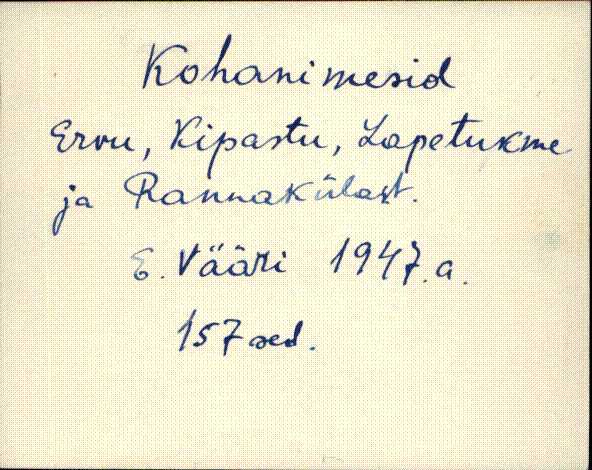 Kohanimesid
Ervu, Kipastu, Lapetukme
ja Rannakülast.
E. Vääri 1947.a.
157 sed.